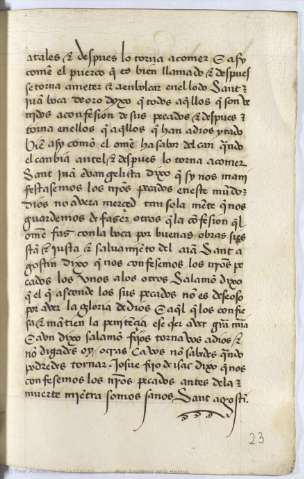 atales & despues lo torna acomer E asy
como el puerco q̃ es bien llamado & despues
se torna ameter & aenbolcar enel lodo Sant
juã boca de oro dyxo q̃ todos aq̃llos q̃ son ve
nidos aconfesiõn de sus pecados & despues
torna enellos q̃ aq̃llos q̃ han
bien asy como el ome
el canbia antel & despues lo torna acomer
Sant juã evangelista dixo q̃ sy nos mani
festasemos los nr̃os pecados eneste mũdo
dios no avera merced tan sola mẽte q̃ nos
guardemos de faser otros q̃ la cõfesion q̃l
ome fas con la boca por buenas obras
& justa & saluamiẽto del aĩa Sant a
gostin dixo q̃ nos confesemos los nr̃os pe
cados los vnos alos otros Salamõ dixo
q̃ el q̃ asconde los sus pecados no es deseoso
por aver la gloria de dios E aq̃l q̃ los confie
sa & mãtien la penitẽçia ese q̃er aver grã
E avn dixo salamõ fijos tornavos adios &
no digades oy o cras Ca vos no sabedes q̃ndo
podredes tornar Josue fijo de isac dixo q̃ nos
confesemos los nr̃os pecados antes dela
muerte miẽtra somos sanos Sant agostĩ
23